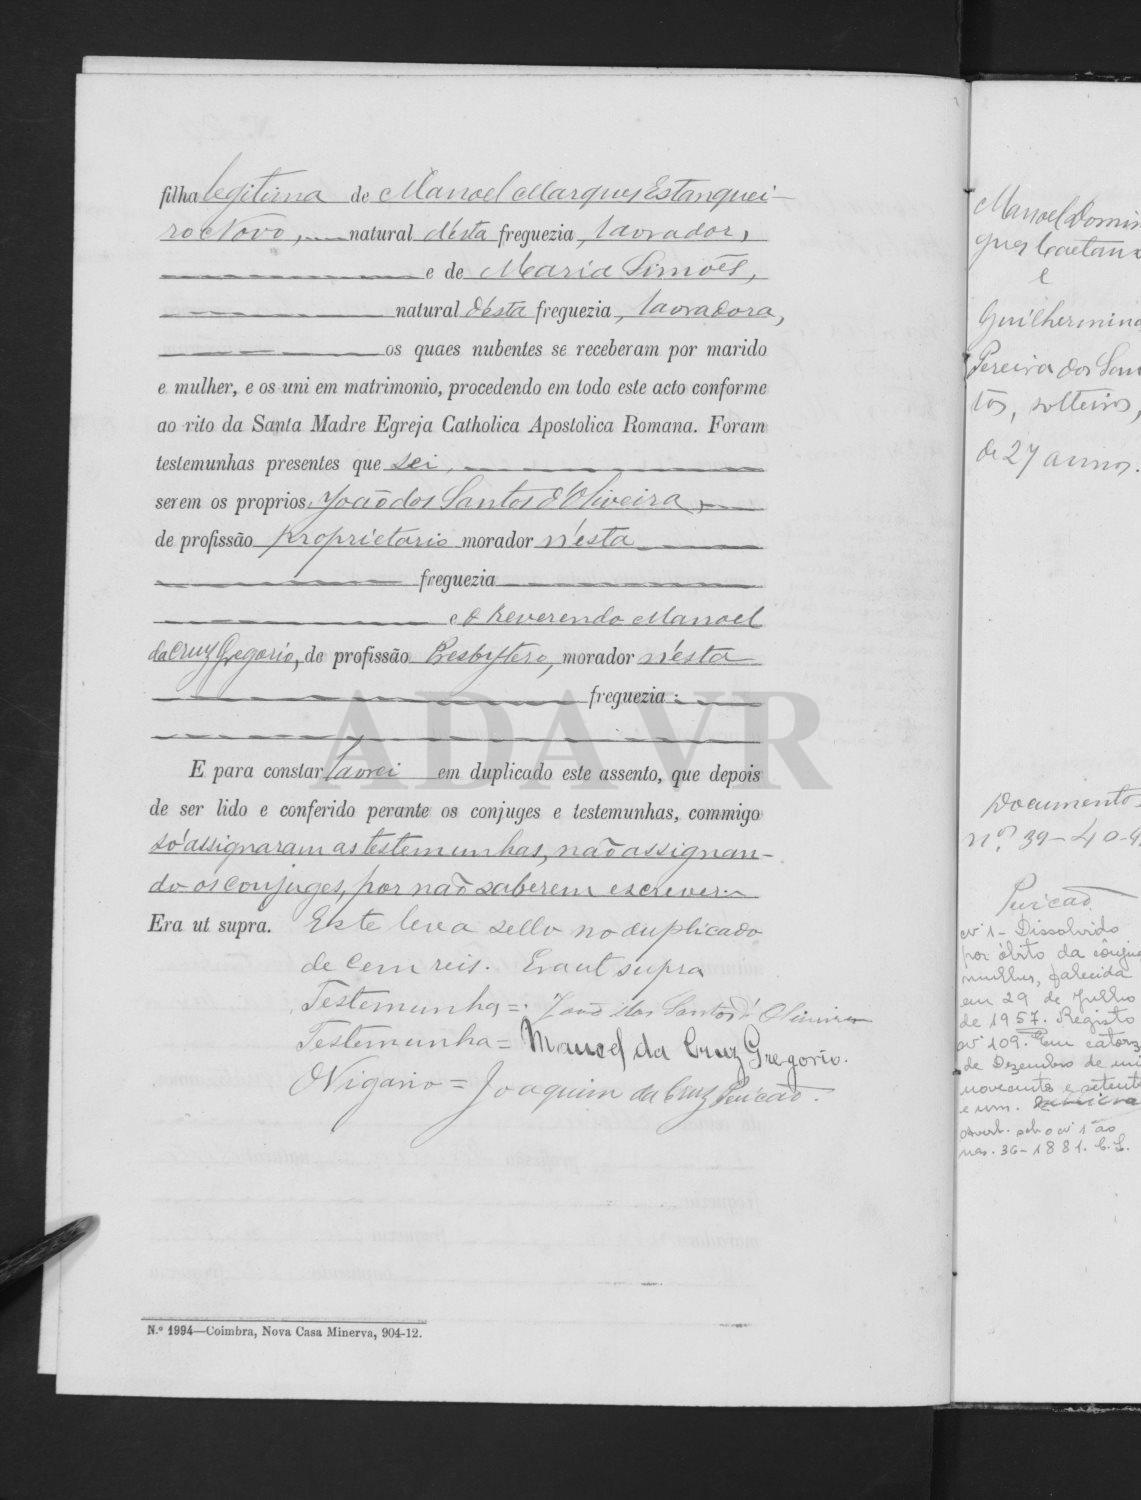 filha legitima de Manoel Marques Estanquei-
ro Novo, natural d'ésta freguezia, lavrador,
e de Maria Simões,
natural d'ésta freguezia, lavradora,
os quaes nubentes se receberam por marido
e mulher, e os uni em matrimonio, procedendo em todo este acto conforme
ao rito da Santa Madre Egreja Catholica Apostolica Romana. Foram
testemunhas presentes que sei,
serem os proprios, João dos Santos d'Oliveira,
de profissão proprietario morador n'ésta
freguezia
e o Reverendo Manoel
da Cruz Gregorio, de profissão Presbytero, morador n'ésta
freguezia:
ADAVR
E para constar lavrei em duplicado este assento, que depois
de ser lido e conferido perante os conjuges e testemunhas, commigo
só assignaram as testemunhas, não assignan-
do os conjuges, por não saberem escrever.
Era ut supra. Este leva sello no duplicado
de cem reis. Era ut supra
Testemunha = João dos Santos d'Oliveira
Testemunha = Manoel da Cruz Gregorio.
O Vigario = Joaquim da Cruz Pericão.
N.º 1994—Coimbra, Nova Casa Minerva, 904-12.
Manoel Domin
gues Caetano
e
Guilhermina
Pereira dos San
tos, solteiros,
de 27 annos.
Documentos
n.os 39-40-4
Pericão
Nº 1 - Dissolvido
por óbito da cônjuge
mulher, falecida
em 29 de Julho
de 1957. Registo
nº 109. Em catorze
de Dezembro de mil
novecentos e setenta
e um.
Averb. sob o nº 1 ao
nas. 36-1881. C.S.